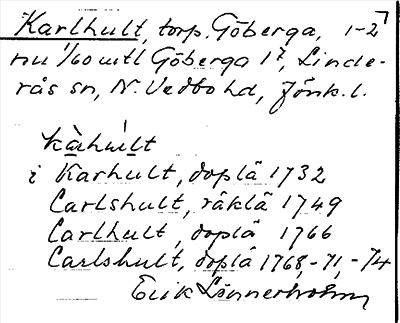 Karlhult, torp, Göberga, 1-2⁷
nu 1/60 mtl Göberga 1⁷, Linde-
rås sn, N. Vedbo hd, Jönk. l.
kàhùlt
i Karhult, doplä 1732
Carlshult, räklä 1749
Carlhult, doplä 1766
Carlshult, doplä 1768, -71, -74
Erik Lönnerholm